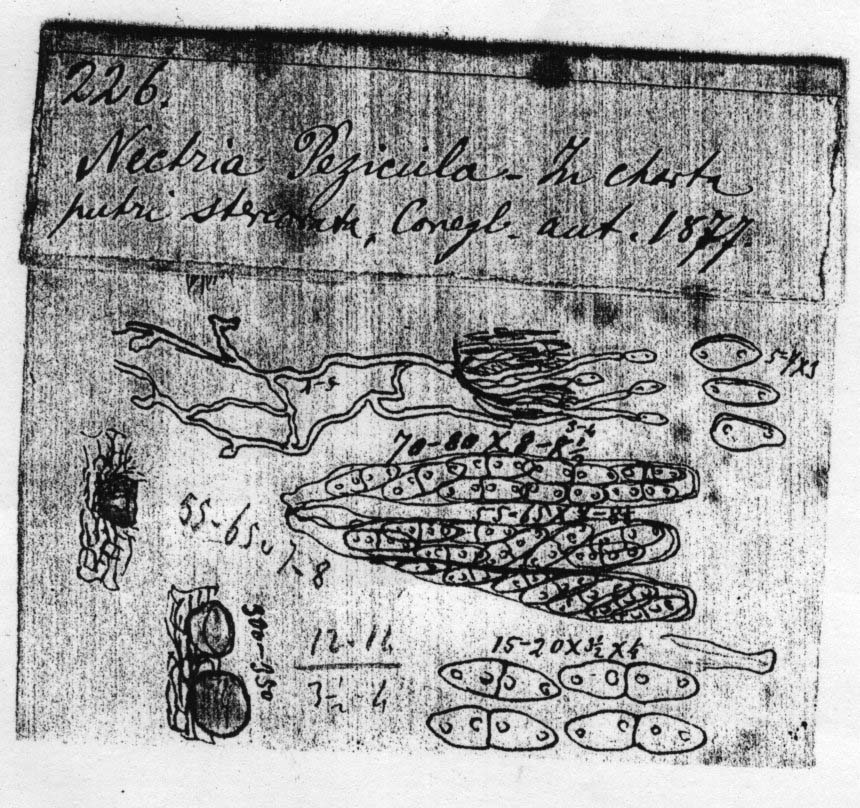 226.
Nectria Pezicula - In charta
putri stercorata, Conegl. aut. 1877.
5-7x3
70-80 x 8-8½
55-65 x 7-8
12-14
3½-4
15-20 x 3½ x 4